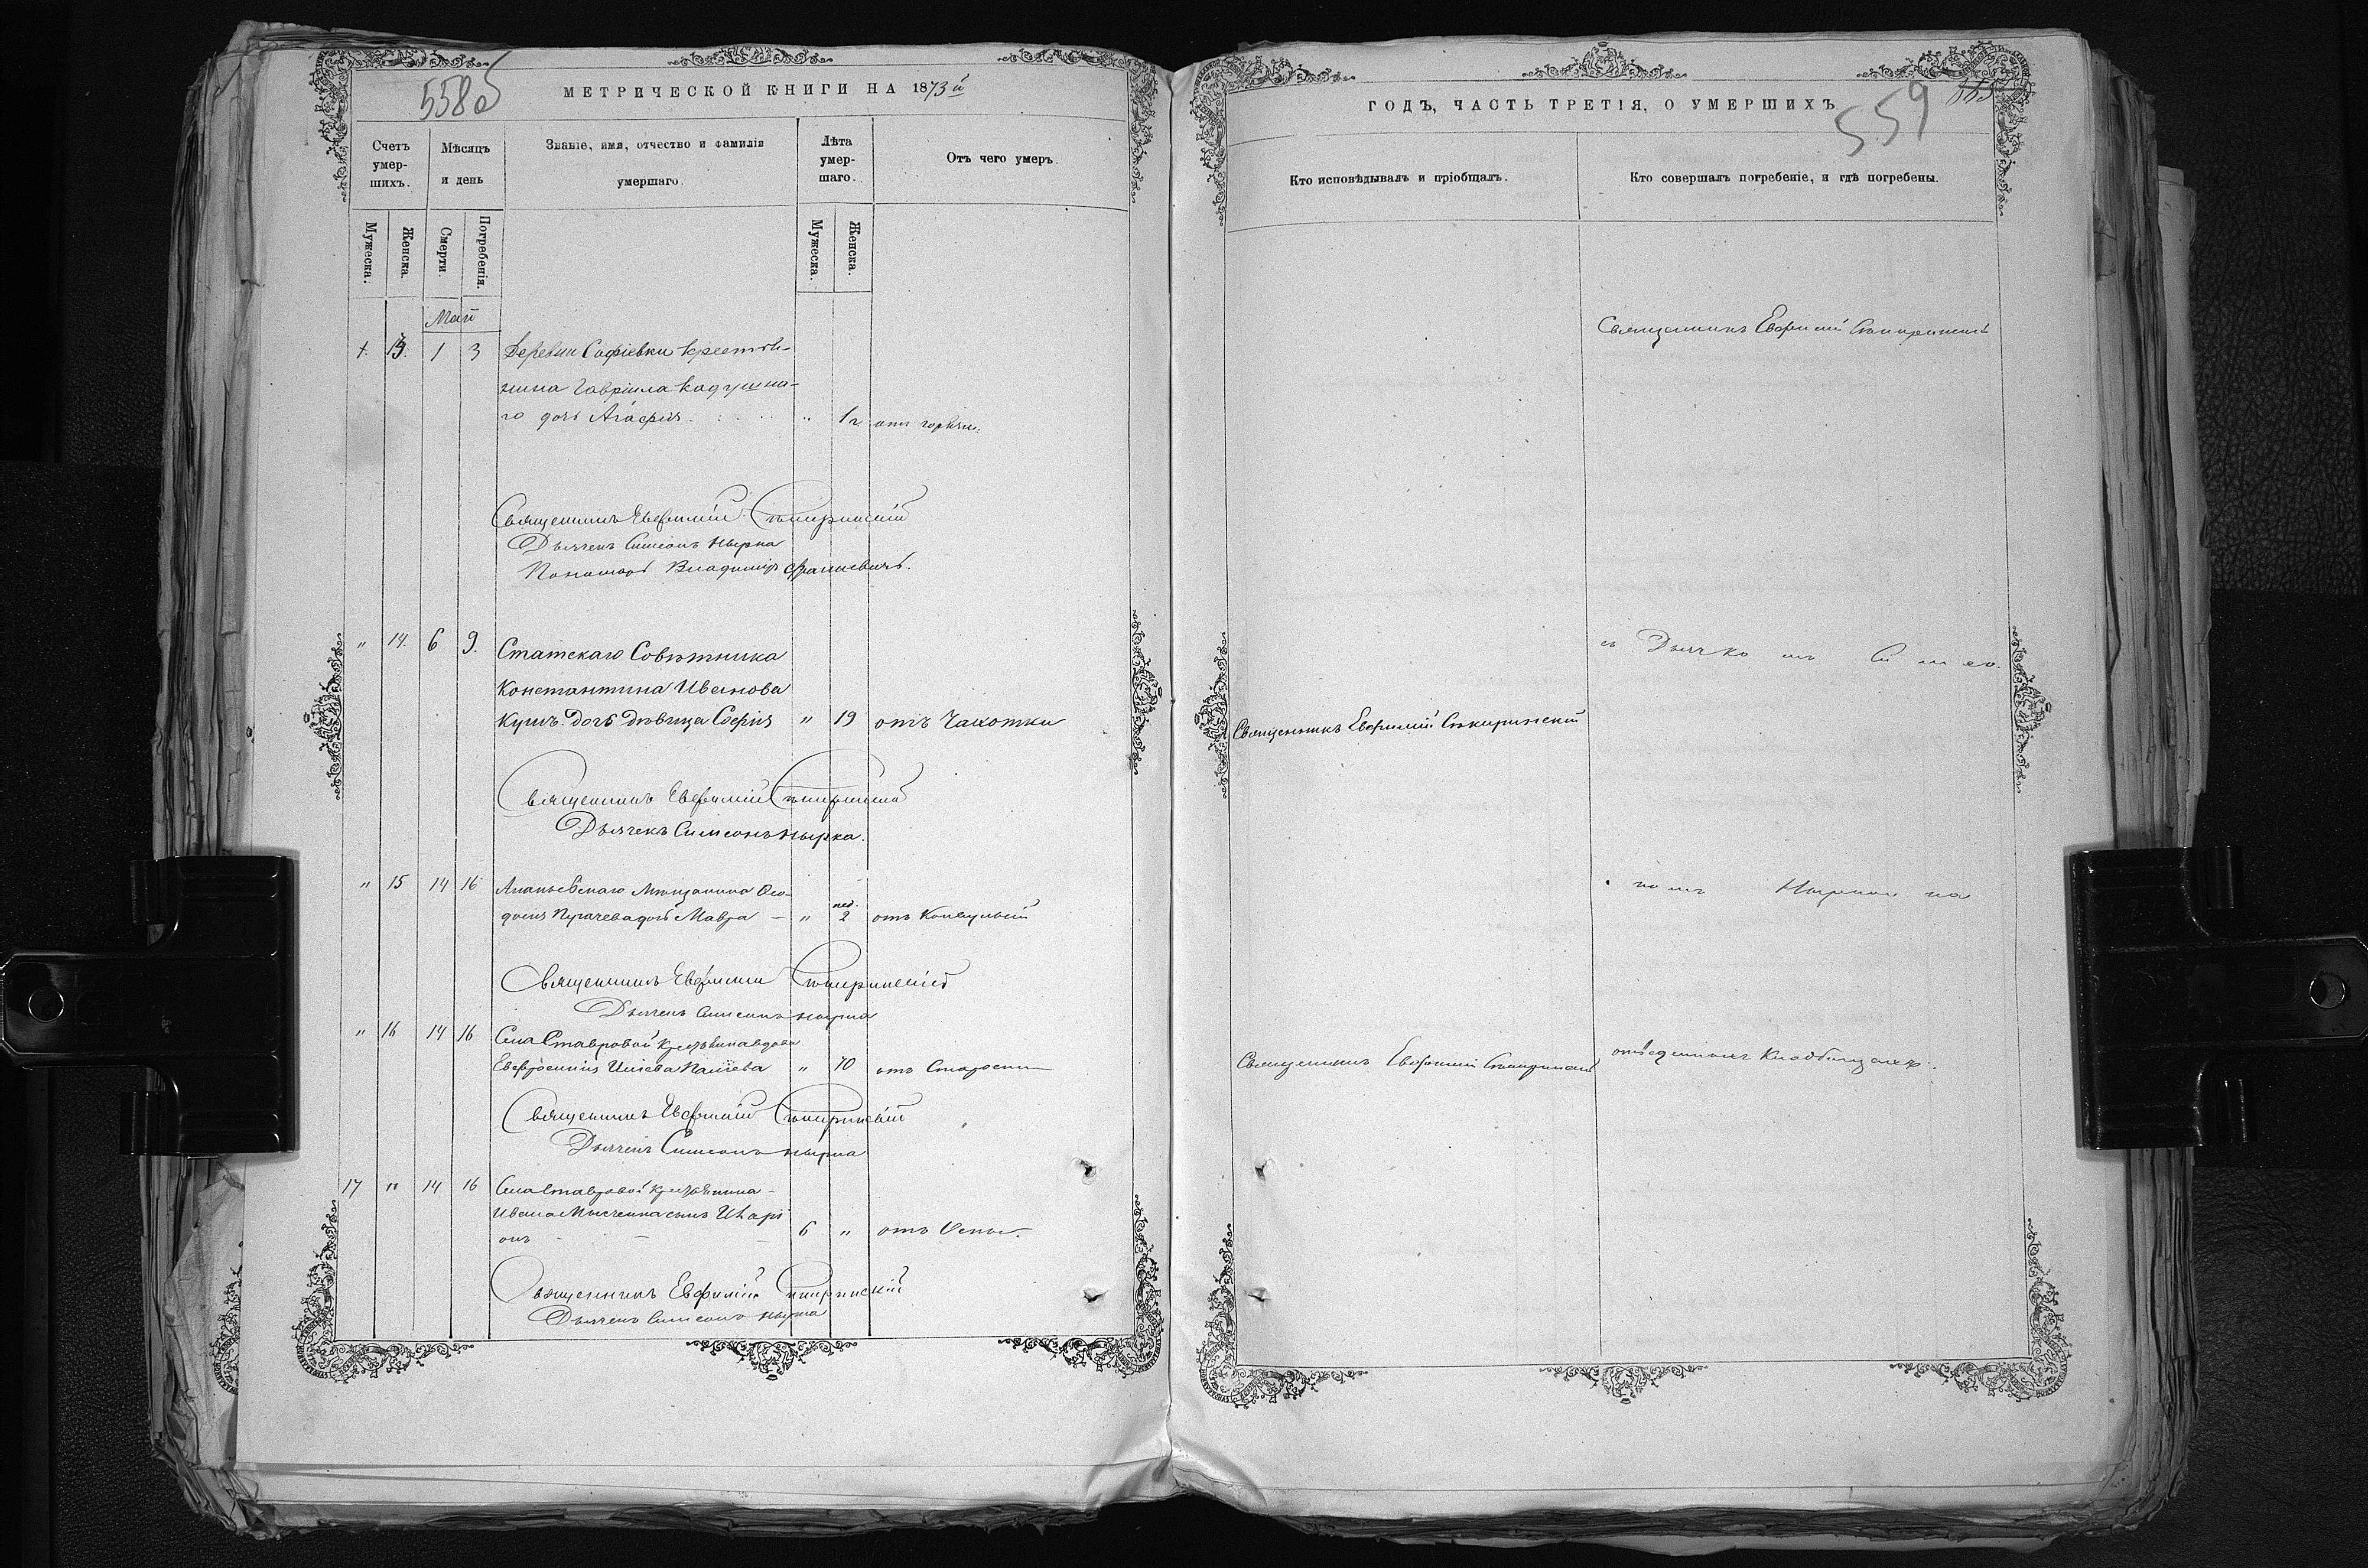 558 об
МЕТРИЧЕСКОЙ КНИГИ НА 1873й
Счетъ умер- шихъ.
Мѣсяцъ и день
Званіе, имя, отчество и фамилія умершаго.
Лѣта умер- шаго.
Отъ чего умеръ.
Мужеска. Женска. Смерти. Погребенія. Мужеска. Женска.
Май
13. 1 3 Деревни Софіевки крестья-
нина Гавріила Кадушна-
го дочь Агафія. " 1 г. отъ горячк:
Священникъ Евфимій Скиринскій
Дьячекъ Симеонъ Нырка
Пономарь Владимір
" 14. 6 9. Статскаго Совѣтника
Константина Иванова
Кушъ. Дочь дѣвица Софія " 19 отъ Чахотки
Священникъ Евфимій Скиринскій
Дьячекъ Симеонъ Нырка.
" 15 14 16 Ананьевскаго Мѣщанина Ѳео-
досія Пугачева дочь Мавра — " нед. 2 отъ Конвульсій
Священникъ Евфимій Скиринскій
Дьячекъ Симеонъ Нырка
" 16 14 16 Села Ставровой Крестьянина вдова
Евфросинія " 70 отъ Старости
Священникъ Евфимій Скиринскій
Дьячекъ Симеонъ Нырка
17 " 14 16 Села Ставровой Крестьянина
Ивана сынъ Иларі
онъ 6 " отъ Оспы.
Священникъ Евфимій Скиринскій
Дьячекъ Симеонъ Нырка
ГОДЪ, ЧАСТЬ ТРЕТІЯ, О УМЕРШИХЪ
559
Кто исповѣдывалъ и пріобщалъ.
Кто совершалъ погребеніе, и гдѣ погребены.
Священникъ Евфимій Скиринскій
съ Дьячкомъ Симео-
Священникъ Евфимій Скиринскій
номъ Ныркою на
Священникъ Евфимій Скиринскій
отведенномъ Кладбищахъ.